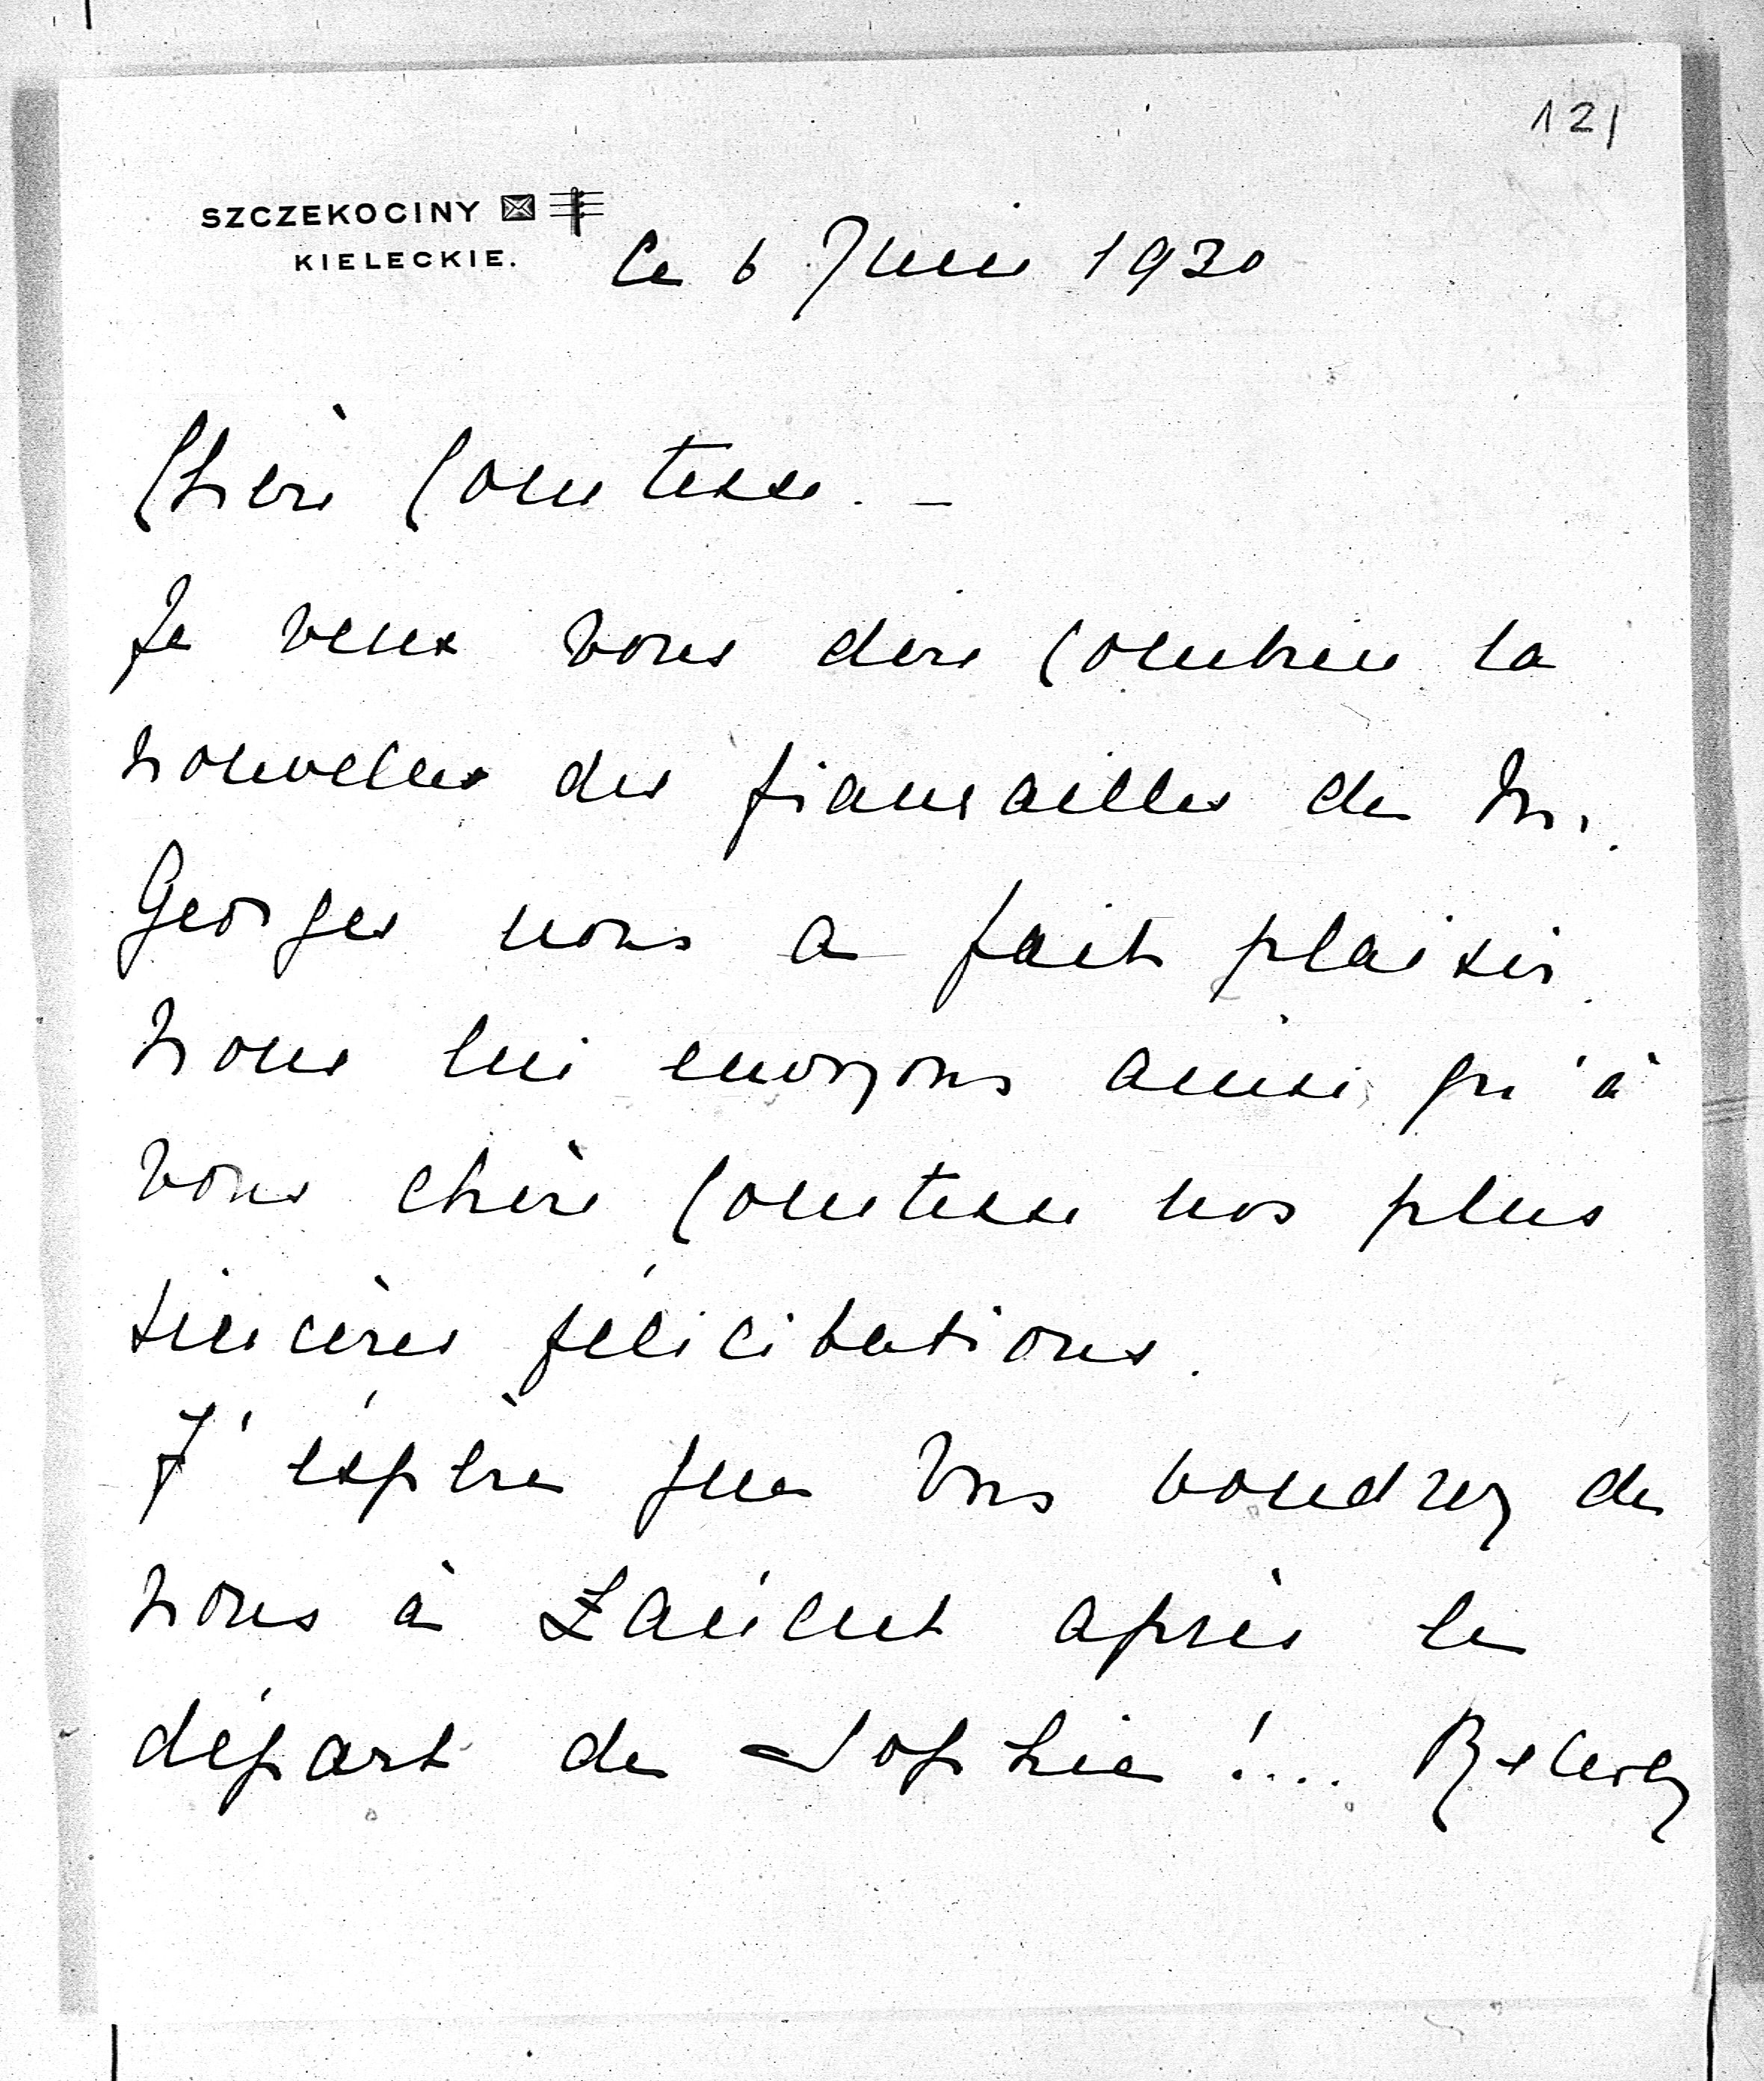 121
SZCZEKOCINY
KIELECKIE.
Le 6 Juin 1930
Chère Comtesse. –
Je veux vous dire combien la
nouvelles des fiançailles de M.
Georges nous a fait plaisir.
Nous lui envoyons ainsi qu'à
vous chère Comtesse nos plus
sincères félicitations.
J'éspère que vous voudrez de
nous à Łańcut après le
départ de Sophie !...